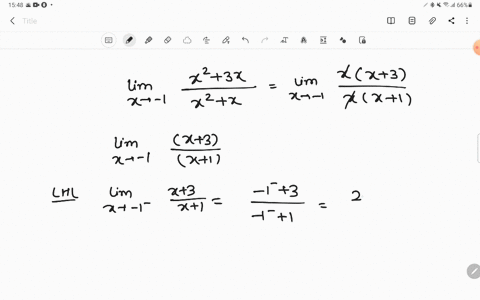 15:48
66%
Title
lim x→-1 x²+3x / x²+x = lim x→-1 x(x+3) / x(x+1)
lim x→-1 (x+3) / (x+1)
LHL lim x→-1⁻ x+3 / x+1 = -1⁻+3 / -1⁻+1 = 2